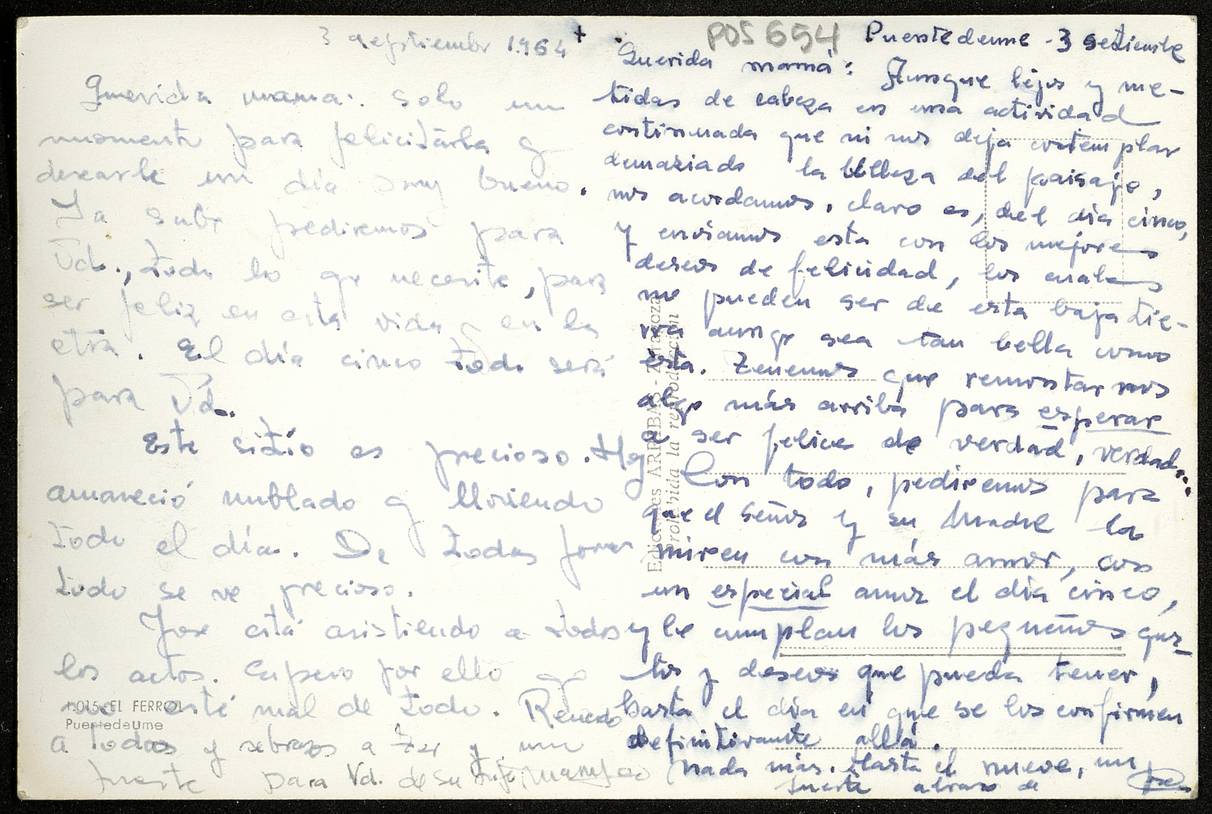 3 septiembre 1964 +
Querida mama: solo un
momento para felicitarla y
desearle un día muy bueno.
Ya sabe pediremos para
Vd., todo lo qe necesite, para
ser feliz en esta vida y en la
otra. El día cinco todo será
para Vd.
Este sitio es precioso. Hoy
amaneció nublado y lloviendo
todo el día. De todas formas
todo se ve precioso.
Jose está asistiendo a todos
los actos. Espero por ello qe
no esté mal de todo. Recuerdos
a todos y abrazos a Fer y un
fuerte para Vd. de su hijo
2015.-EL FERROL
Puentedeume
POS 654
Puentedeume - 3 setiembre
Querida mamá: Aunque lejos y me-
tidas de cabeza en una actividad
continuada que ni nos deja contemplar
demasiado la belleza del paisaje,
nos acordamos, claro es, del día cinco,
y enviamos esta con los mejores
deseos de felicidad, los cuales
no pueden ser de esta baja tie-
rra aunqe sea tan bella como
ésta. Tenemos que remontarnos
algo más arriba para esperar
a ser felices de verdad, verdad...
Con todo, pediremos para
que el Señor y su Madre la
miren con más amor, con
un especial amor el día cinco,
y le cumplan los pequeños gus-
tos y deseos que pueda tener,
hasta el día en que se los confirmen
definitivamente allá.
Nada más. Hasta el nueve, un
fuerte abrazo de
Ediciones ARRIBAS - Zaragoza
Prohibida la reproducción